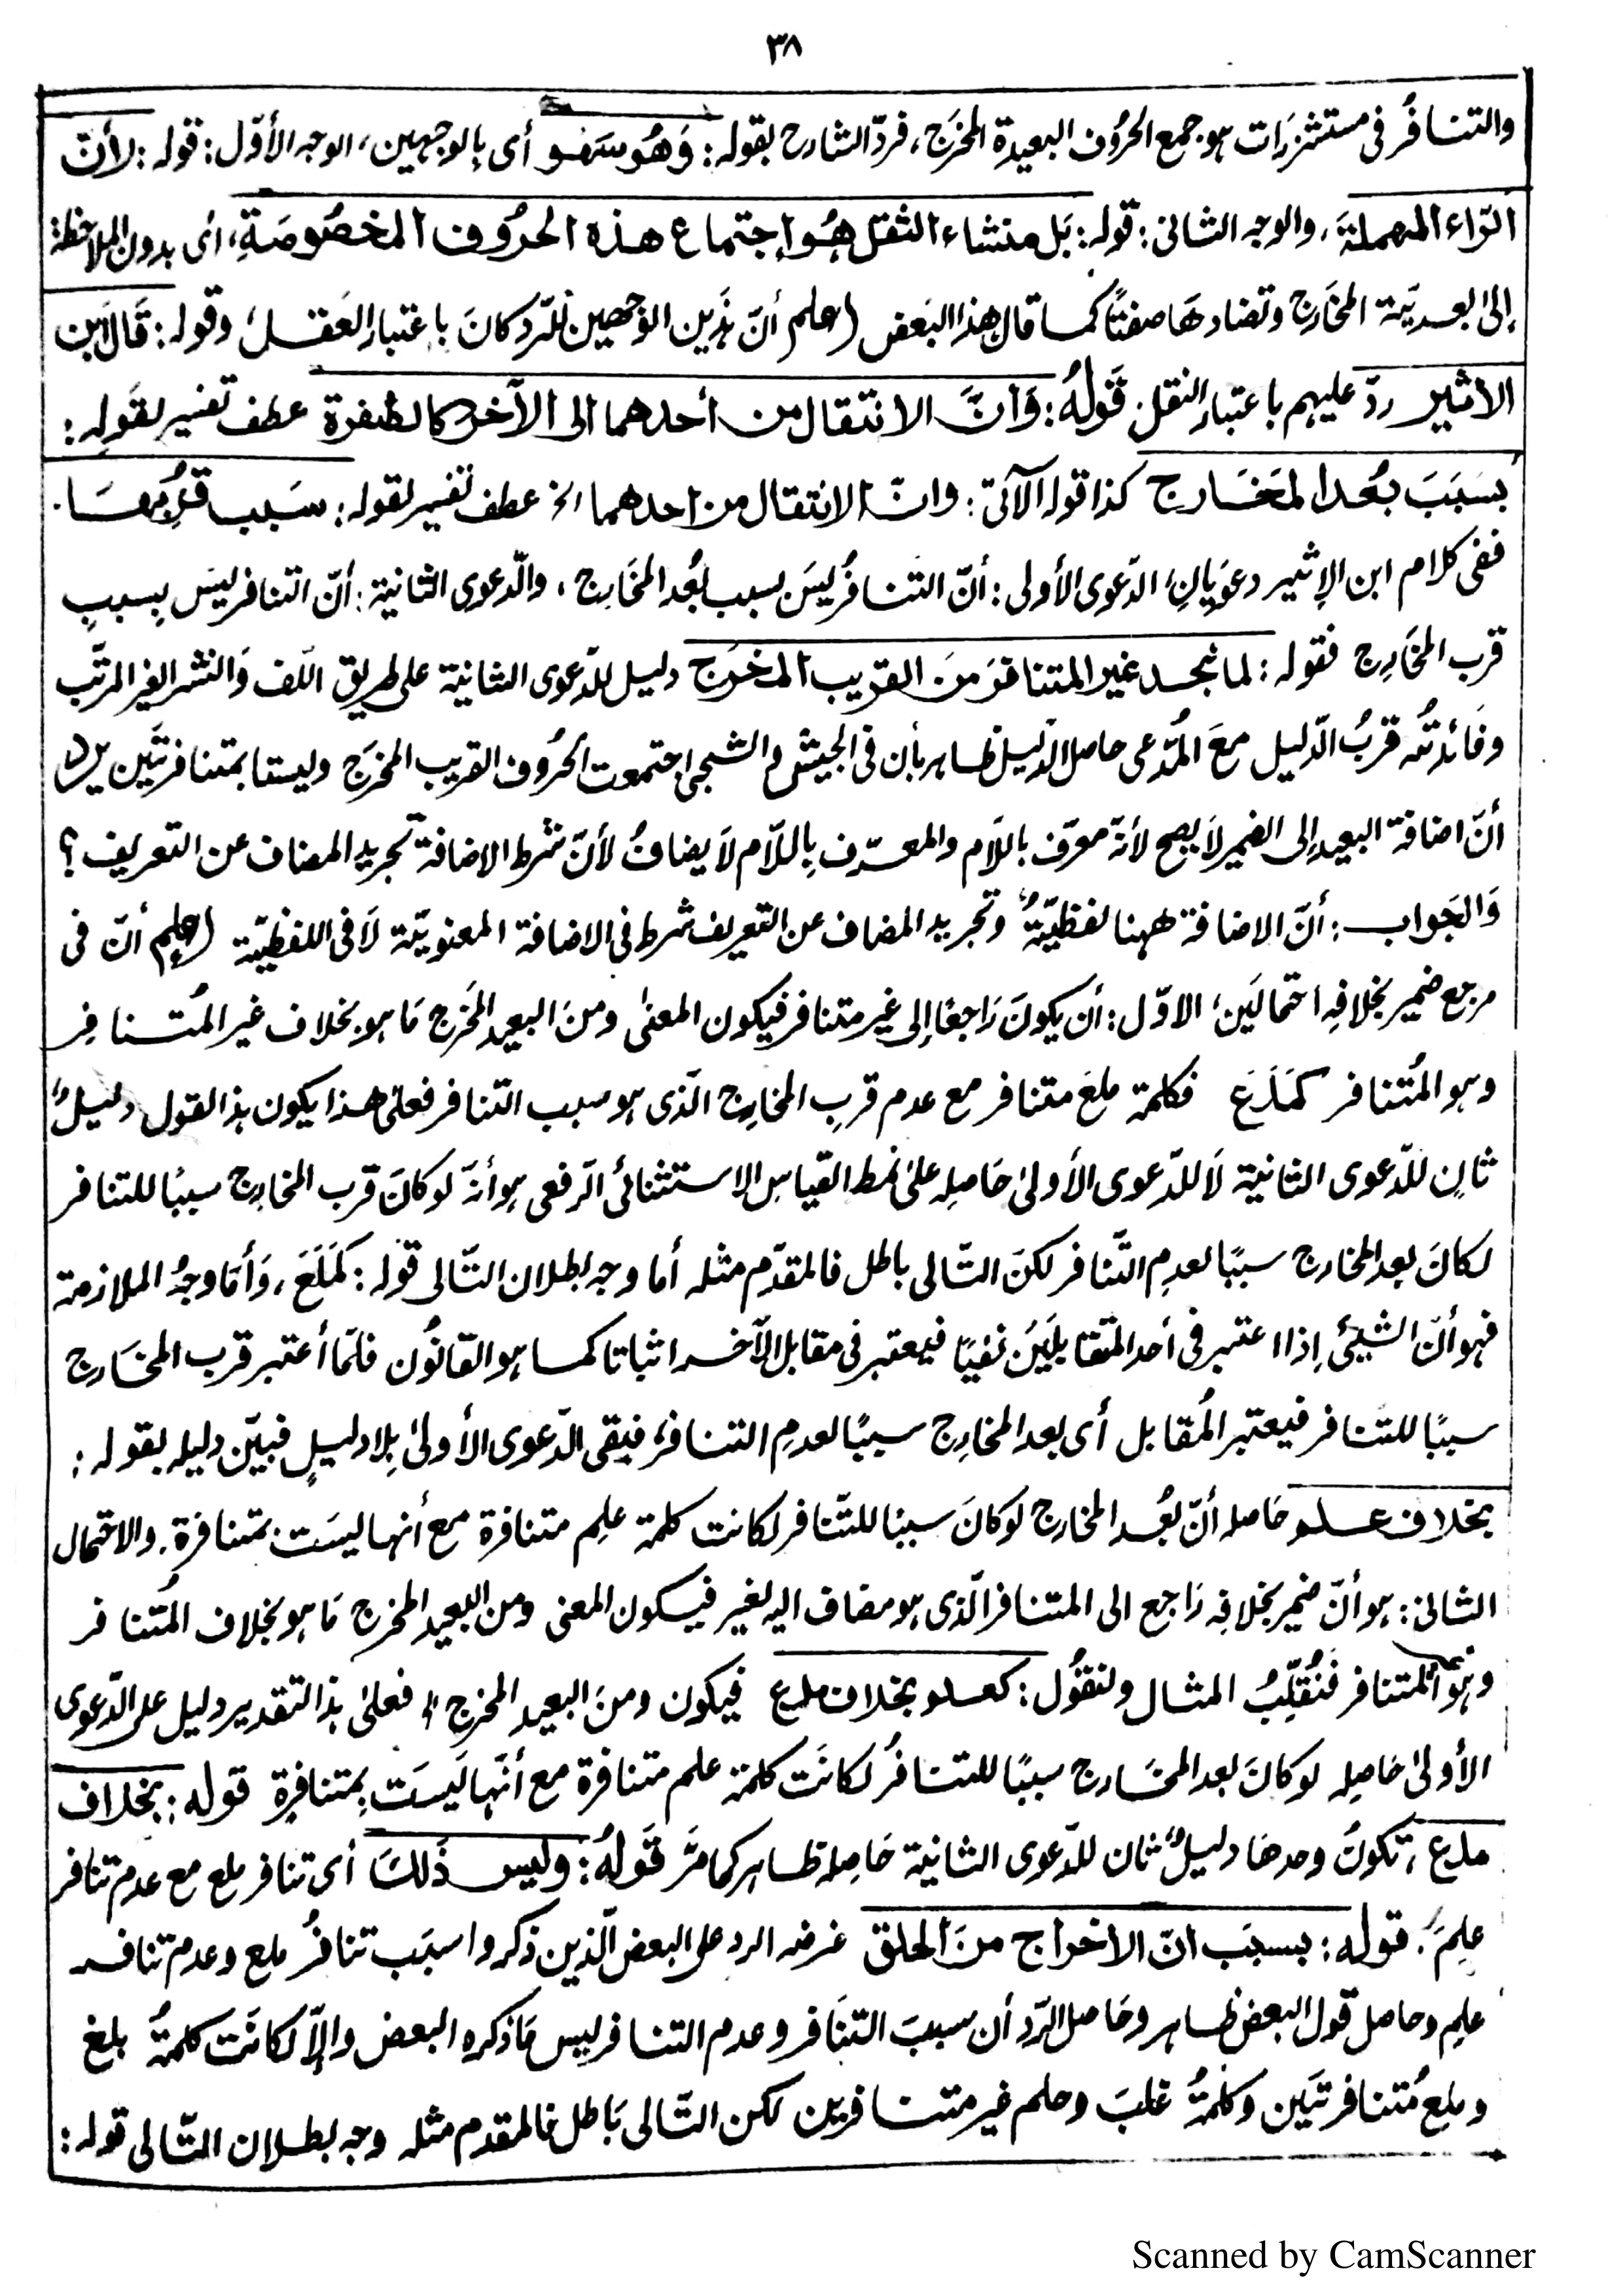 ٣٨
والتنافُر فى مستشزرَات ہو جمع الحرُوف البعيدة المخرَج، فردّ الشارح بقولہ: وَهُوَ سَهْو أى بالوجہين، الوجہ الأوّل: قولہ: لأنّ
الرّاء المهملةَ، والوجہ الثانى: قولہ: بَل منشاء الثقل هُوَ اجتماع هذه الحرُوف المخصُوصَةِ، أى بدون الملاحظة
إلىٰ بعديّة المخَارج وتضادهَا صفتًا كما قال هٰذا البَعض (علم أنّ ہٰذَين الوجھين للرّد كانَ باعتبار العَقلِ وقولہ: قَالَ ابن
الاثير ردّ عليہم باعتبار النقل. قَولُهُ: وَأنَّ الانتقال من أحدهما الى الآخر كالطفرة عطف تفسير لقولہ:
بسَبَبَ بُعد المَخَارج كذا قولہ الآتىّ: وانّ الانتقال من احدهما الخ عطف تفسير لقولہ: سَبب قُربُهَا.
ففى كلام ابن الإثير دعوَيانِ؛ الدّعوى الأولى: أنّ التنافُرُ ليسَ بسبب بُعد المخَارج، والدّعوى الثانية: أنّ التنافر ليس بسببِ
قرب المخَارج فقولہ: لما نجد غير المتنافر مَنَ القريب المخرَج دليل للدّعوى الثانية على طريق اللّف وَالنشر الغير المرتّب
وفَائدتُہ قربُ الدّليل معَ المُدّعى حاصل الدّليل ظاہر بأن فى الجيش والشجى اجتمعت الحرُوف القريب المخرَج وليستا بمتنافرتَين يرد
أنّ اضافة البعيد إلى الضمير لاَ يصح لأنّہ معرّف باللّام والمعرّف بِاللّام لاَ يضافُ لأنّ شرط الاضافة تجريد المضاف عن التعريف؟
وَالجَواب: أنّ الاضافة ههنا لفظيّةٌ وتجريد المضاف عن التعريف شرط فى الاضافة المعنويّة لاَ فى اللفظيّة (علم أنّ فى
مرجع ضمير بخلافِہ احتمالَين؛ الاوّل: أن يكونَ رَاجعًا إلى غير متنافر فيكون المعنىٰ ومنَ البعيد المخَرج مَا ہو بخلاف غير المُتنافِر
وہو المُتنافر كَمَلَعَ فكلمة ملعَ متنافر مع عدم قربِ المخارج الّذى ہو سبب التنافر فعلىٰ هٰذا يكون ہٰذا القول دليلٌ
ثانٍ للدّعوى الثانية لاَ للدّعوى الأولىٰ حَاصلہ علىٰ نمط القياس الاستثنائى الرّفعى ہو أنہّ لو كانَ قرب المخارج سببًا للتنافر
لكانَ بعد المخارج سببًا لعدمِ التّنافر لكن التّالى باطل فالمقدّم مثلہ أما وجہ بطلان التّالى قولہ: كَمَلَعَ، وَأمّا وجہُ الملازمة
فہو أنّ الشيئى إذا اعتبر فى أحد المتقابلَيَنِ نفيًا فيعتبر فى مقابل الآخر اثباتا كما ہو القانُون فلمّا أعتبر قرب المخَارج
سببًا للتنافر فيعتبر المُقابل أى بعد المخارج سببًا لعدمِ التنافر؛ فبقى الدّعوى الأولىٰ بِلا دليلٍ فبيّن دليلہ بقولہ:
بخلاف علم حَاصلہ أنّ بُعد المخارج لو كانَ سببًا للتّنافر لكانت كلمة علِم متنافرة مع أنہا ليسَت بمتنافرة. والاحتمال
الثانى: ہو أنّ ضمير بخلافِہ رَاجع الى المتنافر الّذى ہو مضاف اليہ لغير فيكون المعنى ومن البعيد المخرج مَا ہو بخلاف المُتنافر
وہو المتنافر فنُقلِّبُ المثال ولنقوُل: كعلم بخلاف ملع فيكون ومنَ البعيد المخرج الخ فعلىٰ ہذا التقدير دليل على الدّعوى
الأولىٰ حَاصلِہ لو كانَ بعد المخَارج سببًا للتنافُر لكانَت كلمة علم متنافرة مع أنّہا لَيسَت بِمتنافِرة قولہ: بخلاف
ملع؛ تكونُ وحدھَا دليلٌ ثان للدّعوى الثانية حَاصلہ ظاہر كما مَرّ قَولُهُ: وليس ذَلكَ أى تنافر ملع مع عدم تنافر
علِمَ. قولہ: بسببَ انّ الاخراج منَ الحلق غرضہ الرد على البعض الّذين ذكروا سببَ تنافُر ملع وعدم تنافر
علِم وحاصل قول البعض ظاہر وحَاصل الرّد أن سببَ التّنَافر وعدم التنافر ليس مَا ذكره البعض والاّ لكانَت كلمةُ بلغ
وملع مُتنافرتَين وكلمةُ غلبَ وحلم غير متنافرين لكن التّالى بَاطل فالمقدم مثلہ وجہ بطلان التّالى قولہ:
Scanned by CamScanner